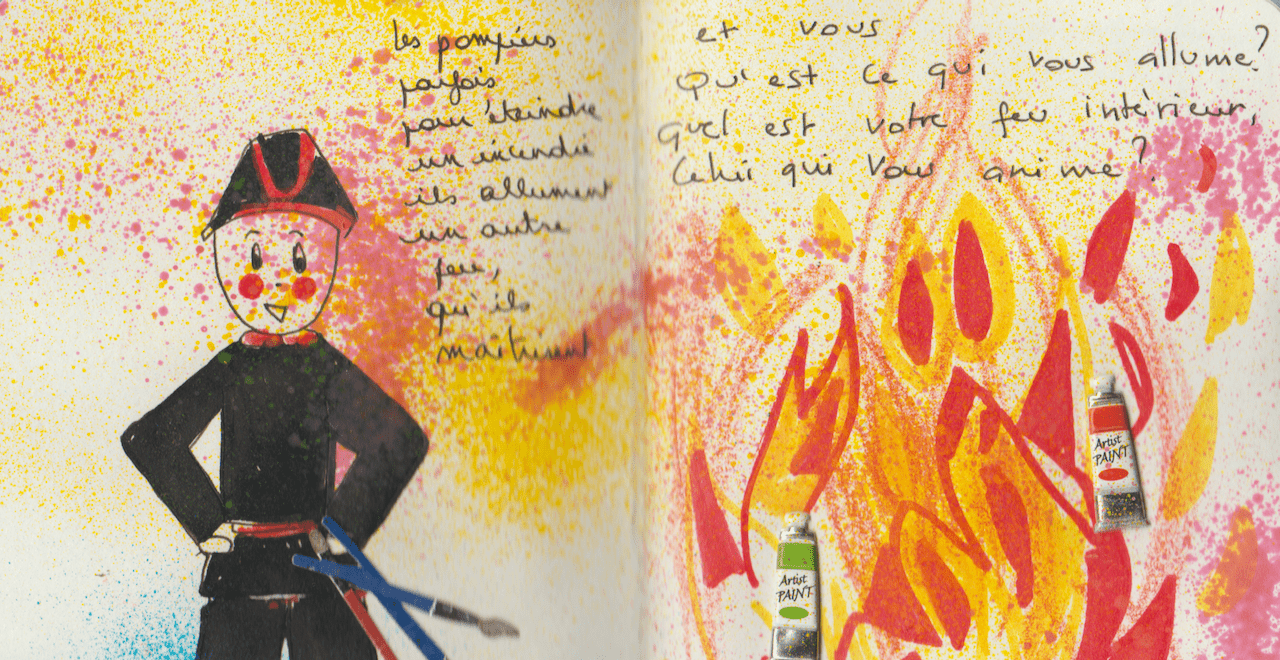 les pompiers
parfois
pour éteindre
un incendie
ils allument
un autre
feu,
qu'ils
maîtrisent
et vous
Qu'est ce qui vous allume?
quel est votre feu intérieur,
Celui qui vous anime?
Artist
PAINT
Artist
PAINT